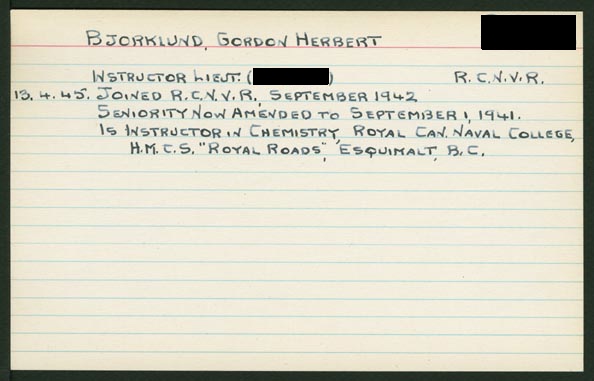 BJORKLUND, GORDON HERBERT
INSTRUCTOR LIEUT. ( ) R.C.N.V.R.
13.4.45. JOINED R.C.N.V.R., SEPTEMBER 1942
SENIORITY NOW AMENDED TO SEPTEMBER 1, 1941.
IS INSTRUCTOR IN CHEMISTRY, ROYAL CAN. NAVAL COLLEGE,
H.M.C.S. "ROYAL ROADS", ESQUIMALT, B.C.